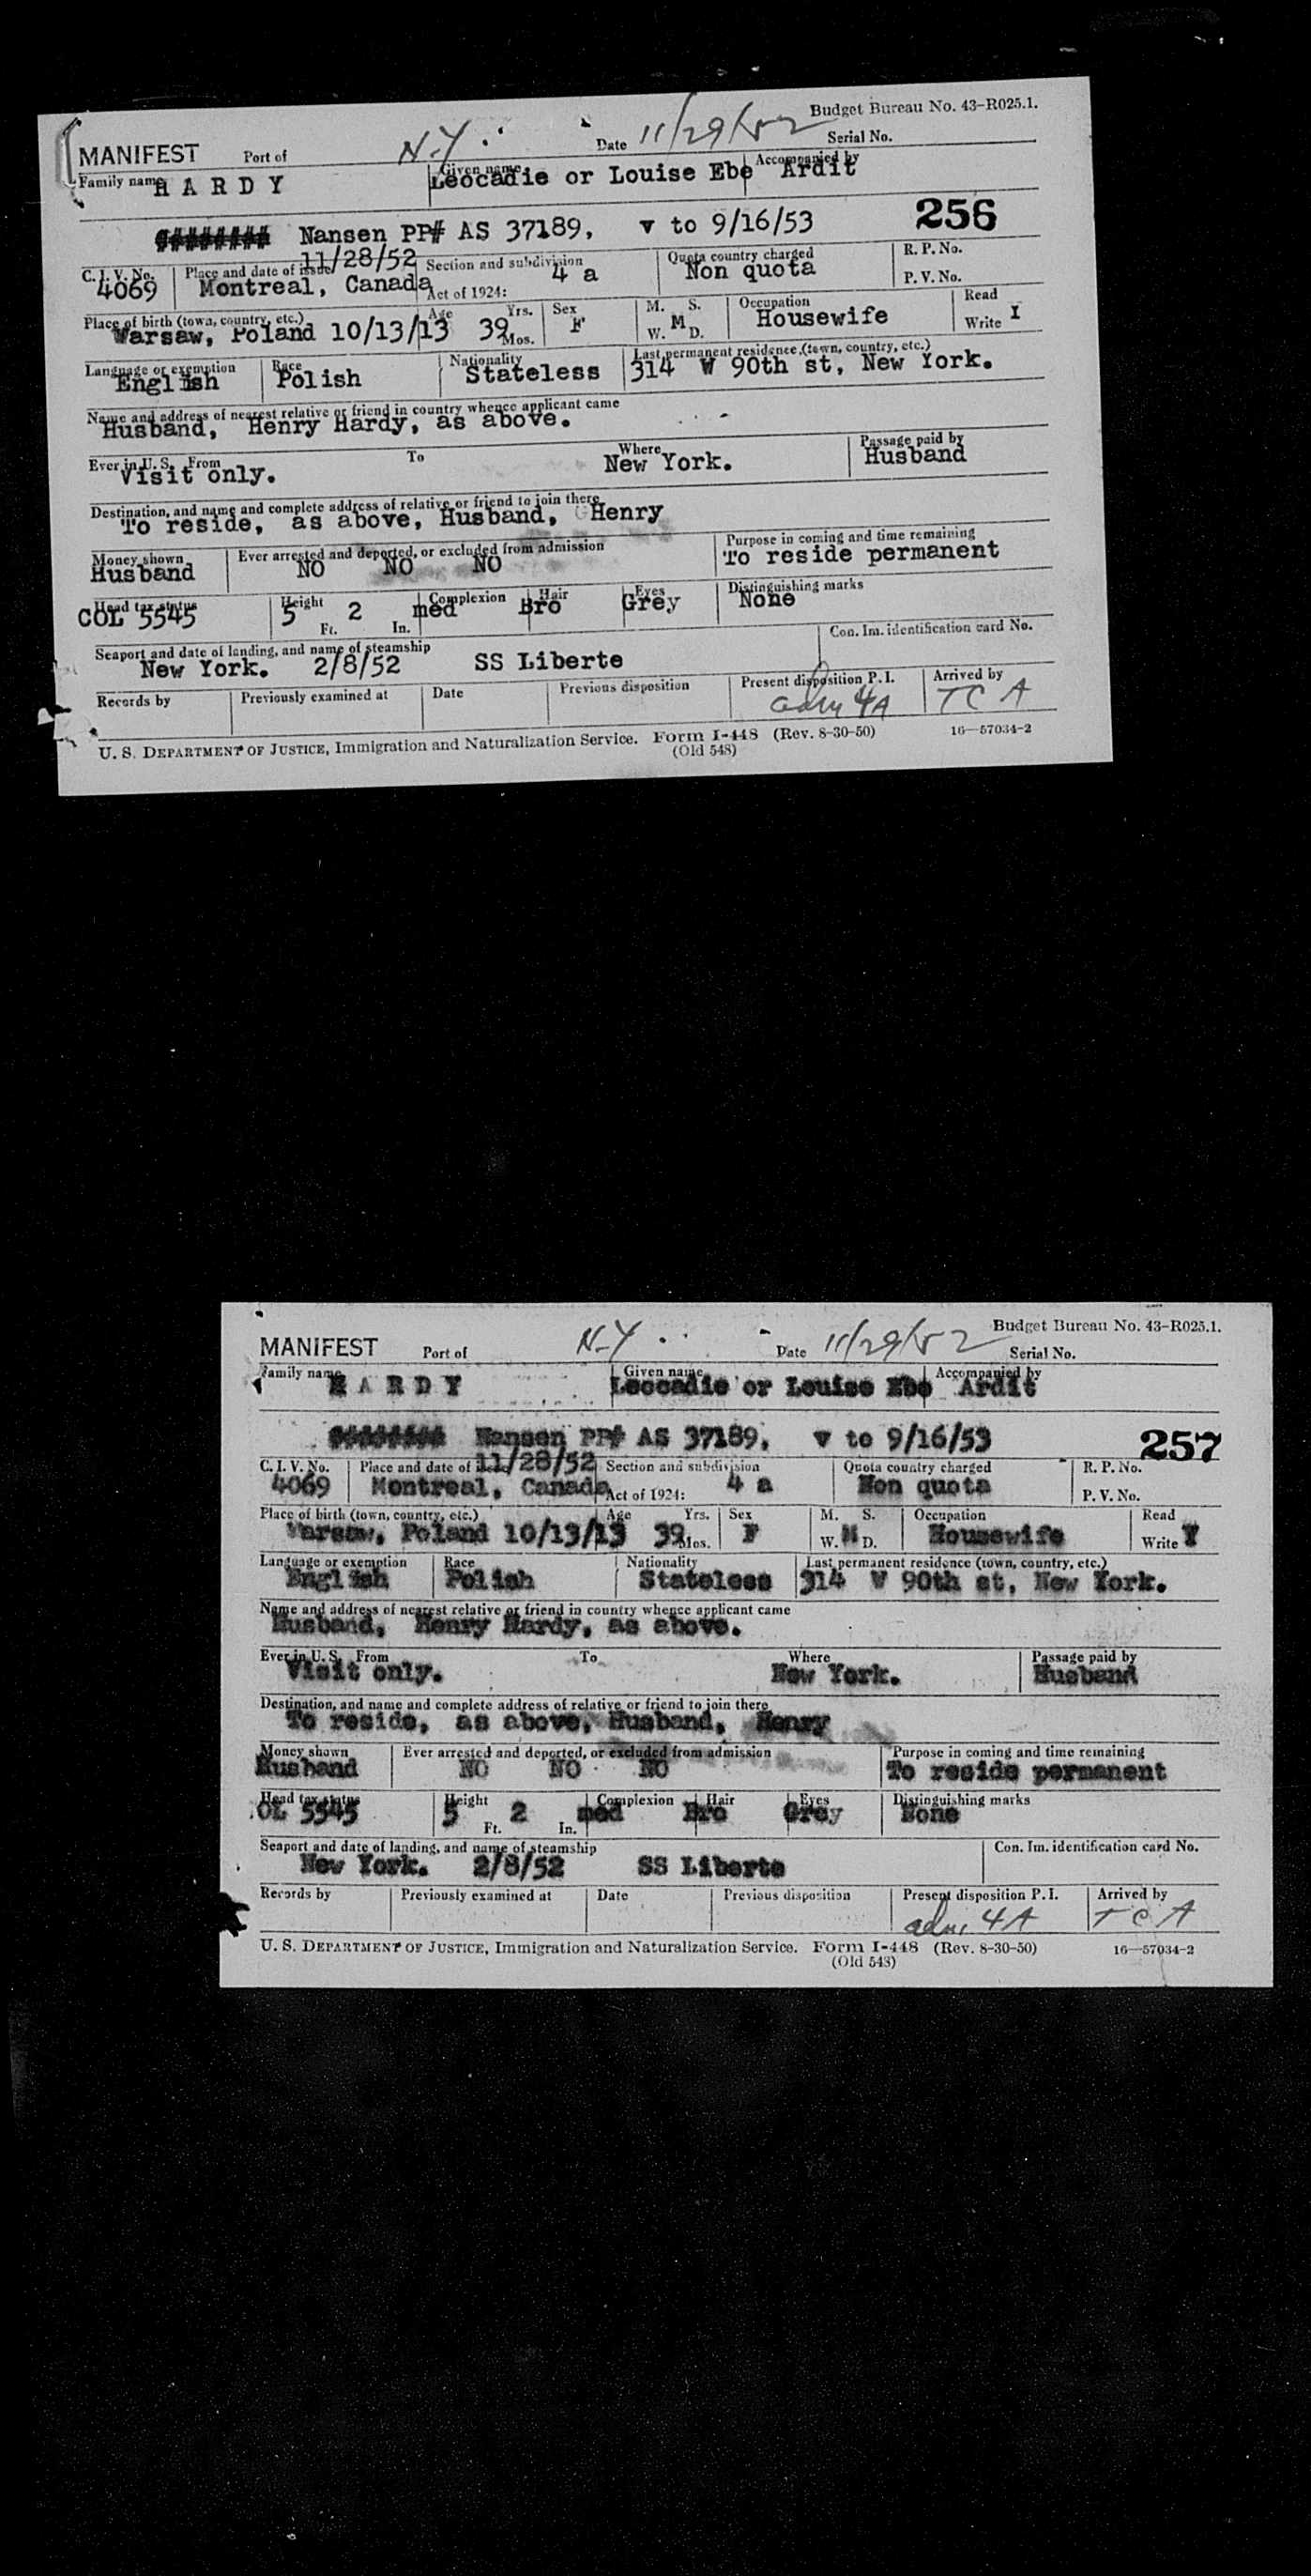 Budget Bureau No. 43-R025.1.
MANIFEST Port of N-Y. Date 11/29/52 Serial No.
Family name HARDY Given name Leocadie or Louise Ebe Accompanied by Ardit
######## Nansen PP# AS 37189, v to 9/16/53 256
C. I. V. No. 4069 Place and date of issue Montreal, Canada 11/28/52 Section and subdivision Act of 1924: 4 a Quota country charged Non quota R. P. No. P. V. No.
Place of birth (town, country, etc.) Warsaw, Poland 10/13/13 Age 39 Yrs. Mos. Sex F M. S. W. D. M Occupation Housewife Read Write I
Language or exemption English Race Polish Nationality Stateless Last permanent residence (town, country, etc.) 314 W 90th st, New York.
Name and address of nearest relative or friend in country whence applicant came
Husband, Henry Hardy, as above.
Ever in U. S. From Visit only. To Where New York. Passage paid by Husband
Destination, and name and complete address of relative or friend to join there
To reside, as above, Husband, Henry
Money shown Husband Ever arrested and deported, or excluded from admission NO NO NO Purpose in coming and time remaining To reside permanent
Head tax status COL 5545 Height 5 Ft. 2 In. Complexion med Hair Bro Eyes Grey Distinguishing marks None
Seaport and date of landing, and name of steamship New York. 2/8/52 SS Liberte Con. Im. identification card No.
Records by Previously examined at Date Previous disposition Present disposition P. I. adm 4A Arrived by TCA
U. S. DEPARTMENT OF JUSTICE, Immigration and Naturalization Service. Form I-448 (Rev. 8-30-50) 16—57034-2
(Old 548)
Budget Bureau No. 43-R025.1.
MANIFEST Port of N-Y. Date 11/29/52 Serial No.
Family name HARDY Given name Leocadie or Louise Ebe Accompanied by Ardit
######## Nansen PP# AS 37189, v to 9/16/53 257
C. I. V. No. 4069 Place and date of issue Montreal, Canada 11/28/52 Section and subdivision Act of 1924: 4 a Quota country charged Non quota R. P. No. P. V. No.
Place of birth (town, country, etc.) Warsaw, Poland 10/13/13 Age 39 Yrs. Mos. Sex F M. S. W. D. M Occupation Housewife Read Write Y
Language or exemption English Race Polish Nationality Stateless Last permanent residence (town, country, etc.) 314 W 90th st, New York.
Name and address of nearest relative or friend in country whence applicant came
Husband, Henry Hardy, as above.
Ever in U. S. From Visit only. To Where New York. Passage paid by Husband
Destination, and name and complete address of relative or friend to join there
To reside, as above, Husband, Henry
Money shown Husband Ever arrested and deported, or excluded from admission NO NO NO Purpose in coming and time remaining To reside permanent
Head tax status OL 5545 Height 5 Ft. 2 In. Complexion med Hair Bro Eyes Grey Distinguishing marks None
Seaport and date of landing, and name of steamship New York. 2/8/52 SS Liberte Con. Im. identification card No.
Records by Previously examined at Date Previous disposition Present disposition P. I. adm 4A Arrived by TCA
U. S. DEPARTMENT OF JUSTICE, Immigration and Naturalization Service. Form I-448 (Rev. 8-30-50) 16—57034-2
(Old 548)